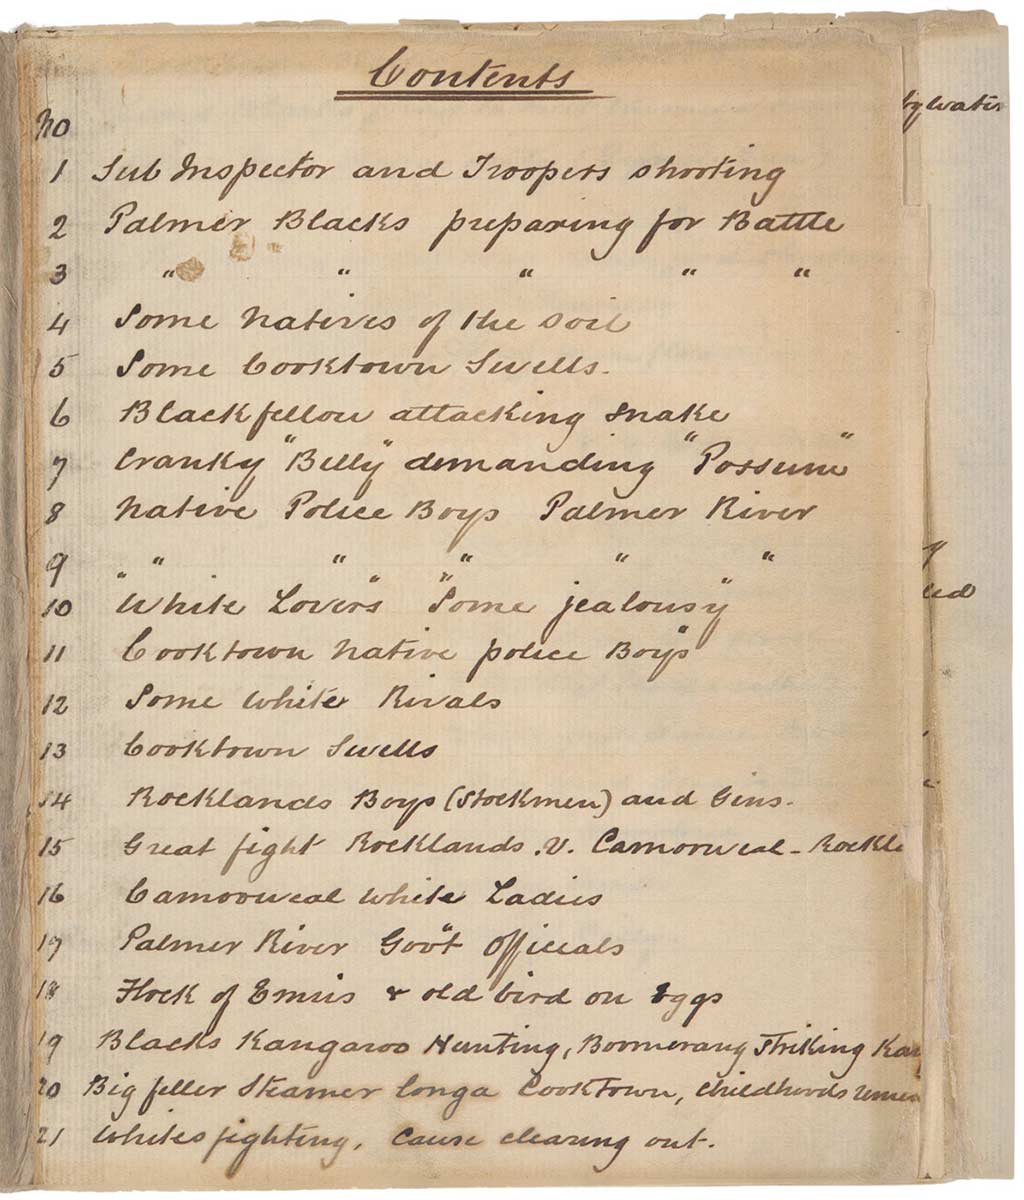 Contents
No
1 Sub Inspector and Troopers shooting
2 Palmer Blacks preparing for Battle
3 " " " " "
4 Some natives of the soil
5 Some Cooktown Swells.
6 Blackfellow attacking snake
7 Cranky "Billy" demanding "Possum"
8 Native Police Boys Palmer River
9 " " " " "
10 "White Lovers" "Some jealousy"
11 Cooktown native police Boys
12 Some white Rivals
13 Cooktown Swells
14 Rocklands Boys (Stockmen) and Gins.
15 Great fight Rocklands .V. Camooweal - Rockl
16 Camooweal white Ladies
17 Palmer River Gov"t Officials
18 Flock of Emus & old bird on Eggs
19 Blacks Kangaroo Hunting, Boomerang Striking Kan
20 Big feller Steamer longa Cooktown, Childhoods
21 Whites fighting, Cause clearing out.